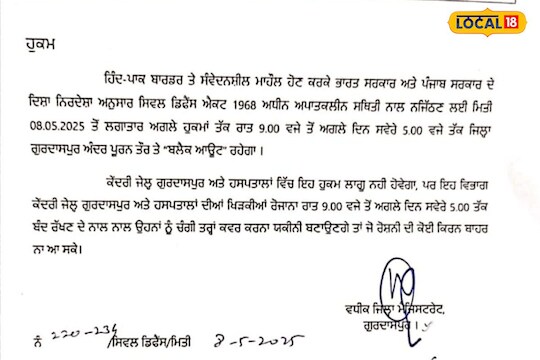 LOCAL 18
ਹੁਕਮ
ਹਿੰਦ-ਪਾਕ ਬਾਰਡਰ ਤੇ ਸੰਵੇਦਨਸ਼ੀਲ ਮਾਹੌਲ ਹੋਣ ਕਰਕੇ ਭਾਰਤ ਸਰਕਾਰ ਅਤੇ ਪੰਜਾਬ ਸਰਕਾਰ ਦੇ
ਦਿਸ਼ਾ ਨਿਰਦੇਸ਼ਾ ਅਨੁਸਾਰ ਸਿਵਲ ਡਿਫੈਂਸ ਐਕਟ 1968 ਅਧੀਨ ਅਪਾਤਕਲੀਨ ਸਥਿਤੀ ਨਾਲ ਨਜਿੱਠਣ ਲਈ ਮਿਤੀ
08.05.2025 ਤੋਂ ਲਗਾਤਾਰ ਅਗਲੇ ਹੁਕਮਾਂ ਤੱਕ ਰਾਤ 9.00 ਵਜੇ ਤੋਂ ਅਗਲੇ ਦਿਨ ਸਵੇਰੇ 5.00 ਵਜੇ ਤੱਕ ਜਿਲ੍ਹਾ
ਗੁਰਦਾਸਪੁਰ ਅੰਦਰ ਪੂਰਨ ਤੌਰ ਤੇ "ਬਲੈਕ ਆਊਟ" ਰਹੇਗਾ ।
ਕੇਂਦਰੀ ਜੇਲ੍ਹ ਗੁਰਦਾਸਪੁਰ ਅਤੇ ਹਸਪਤਾਲਾਂ ਵਿੱਚ ਇਹ ਹੁਕਮ ਲਾਗੂ ਨਹੀ ਹੋਵੇਗਾ, ਪਰ ਇਹ ਵਿਭਾਗ
ਕੇਂਦਰੀ ਜੇਲ੍ਹ ਗੁਰਦਾਸਪੁਰ ਅਤੇ ਹਸਪਤਾਲਾਂ ਦੀਆਂ ਖਿੜਕੀਆਂ ਰੋਜਾਨਾ ਰਾਤ 9.00 ਵਜੇ ਤੋਂ ਅਗਲੇ ਦਿਨ ਸਵੇਰੇ 5.00 ਤੱਕ
ਬੰਦ ਰੱਖਣ ਦੇ ਨਾਲ ਨਾਲ ਉਹਨਾਂ ਨੂੰ ਚੰਗੀ ਤਰ੍ਹਾਂ ਕਵਰ ਕਰਨਾ ਯਕੀਨੀ ਬਣਾਉਣਗੇ ਤਾਂ ਜੋ ਰੋਸ਼ਨੀ ਦੀ ਕੋਈ ਕਿਰਨ ਬਾਹਰ
ਨਾ ਆ ਸਕੇ।
ਵਧੀਕ ਜਿਲ੍ਹਾ ਮੈਜਿਸਟਰੇਟ,
ਗੁਰਦਾਸਪੁਰ ।
ਨੰ 220-234 /ਸਿਵਲ ਡਿਫੈਂਸ/ਮਿਤੀ 8-5-2025